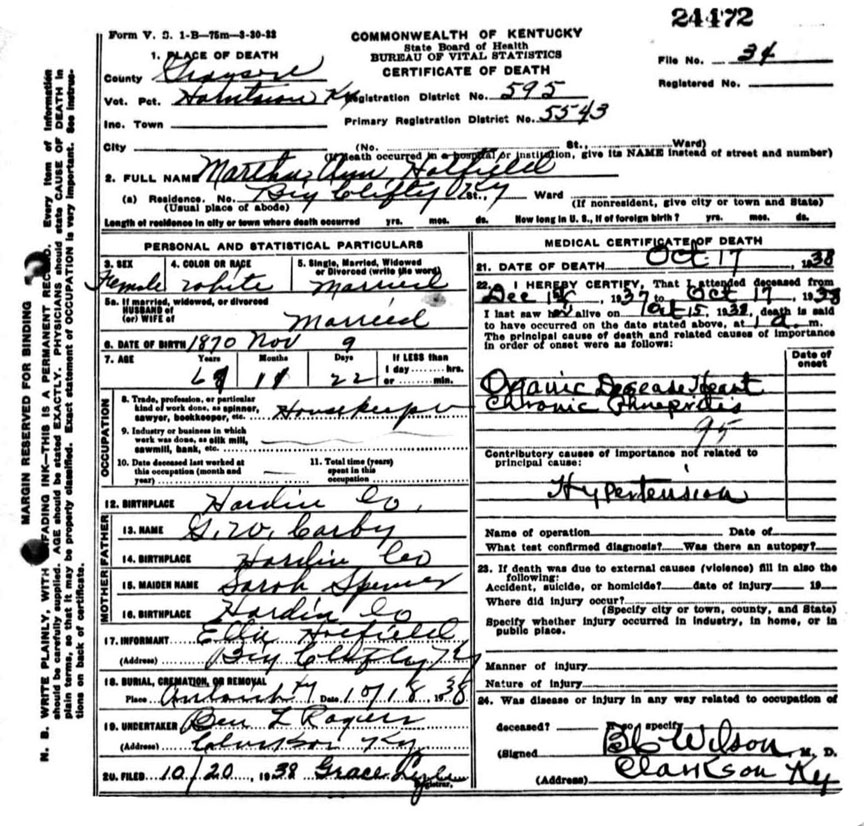 24472
Form V. S. 1-B—75m—3-30-33
COMMONWEALTH OF KENTUCKY
State Board of Health
BUREAU OF VITAL STATISTICS
CERTIFICATE OF DEATH
File No. 34
Registered No.
1. PLACE OF DEATH
County Grayson
Vot. Pct. Ky Registration District No. 595
Inc. Town Primary Registration District No. 5543
City (No. St., Ward)
(If death occurred in a hospital or institution, give its NAME instead of street and number)
2. FULL NAME Martha Ann Hatfield
(a) Residence. No. Big Clifty Ky St., Ward (If nonresident, give city or town and State)
(Usual place of abode)
Length of residence in city or town where death occurred yrs. mos. ds. How long in U. S., if of foreign birth? yrs. mos. ds.
PERSONAL AND STATISTICAL PARTICULARS
3. SEX 4. COLOR OR RACE 5. Single, Married, Widowed or Divorced (write the word)
Female White Married
5a. If married, widowed, or divorced
HUSBAND of
(or) WIFE of Married
6. DATE OF BIRTH 1870 Nov 9
7. AGE Years Months Days If LESS than
1 day hrs.
or min.
11 22
OCCUPATION
8. Trade, profession, or particular kind of work done, as spinner, sawyer, bookkeeper, etc. Housekeeper
9. Industry or business in which work was done, as silk mill, sawmill, bank, etc.
10. Date deceased last worked at this occupation (month and year)
11. Total time (years) spent in this occupation
12. BIRTHPLACE Hardin Co,
FATHER
13. NAME G. W. Carby
14. BIRTHPLACE Hardin Co
MOTHER
15. MAIDEN NAME Sarah Spencer
16. BIRTHPLACE Hardin Co
17. INFORMANT Ellie Hatfield
(Address) Big Clifty Ky
18. BURIAL, CREMATION, OR REMOVAL
Place Antioch Ky Date 10/18 1938
19. UNDERTAKER Ben L Rogers
(Address) Clarkson Ky
20. FILED 10/20, 1938 Grace
Registrar.
MEDICAL CERTIFICATE OF DEATH
21. DATE OF DEATH Oct 17, 1938
22. I HEREBY CERTIFY, That I attended deceased from
Dec, 1937 to Oct 17, 1938
I last saw her alive on Oct 15, 1938, death is said
to have occurred on the date stated above, at 1 a. m.
The principal cause of death and related causes of importance in order of onset were as follows:
Date of onset
Organic Desease Heart
Chronic
95
Contributory causes of importance not related to principal cause:
Hypertension
Name of operation Date of
What test confirmed diagnosis? Was there an autopsy?
23. If death was due to external causes (violence) fill in also the following:
Accident, suicide, or homicide? date of injury 19
Where did injury occur?
(Specify city or town, county, and State)
Specify whether injury occurred in industry, in home, or in public place.
Manner of injury
Nature of injury
24. Was disease or injury in any way related to occupation of
deceased? If so, specify
(Signed Wilson, M. D.
(Address) Clarkson Ky
MARGIN RESERVED FOR BINDING
N. B. WRITE PLAINLY, WITH UNFADING INK—THIS IS A PERMANENT RECORD. Every item of information
should be carefully supplied. AGE should be stated EXACTLY. PHYSICIANS should state CAUSE OF DEATH in
plain terms, so that it may be properly classified. Exact statement of OCCUPATION is very important. See instruc-
tions on back of certificate.